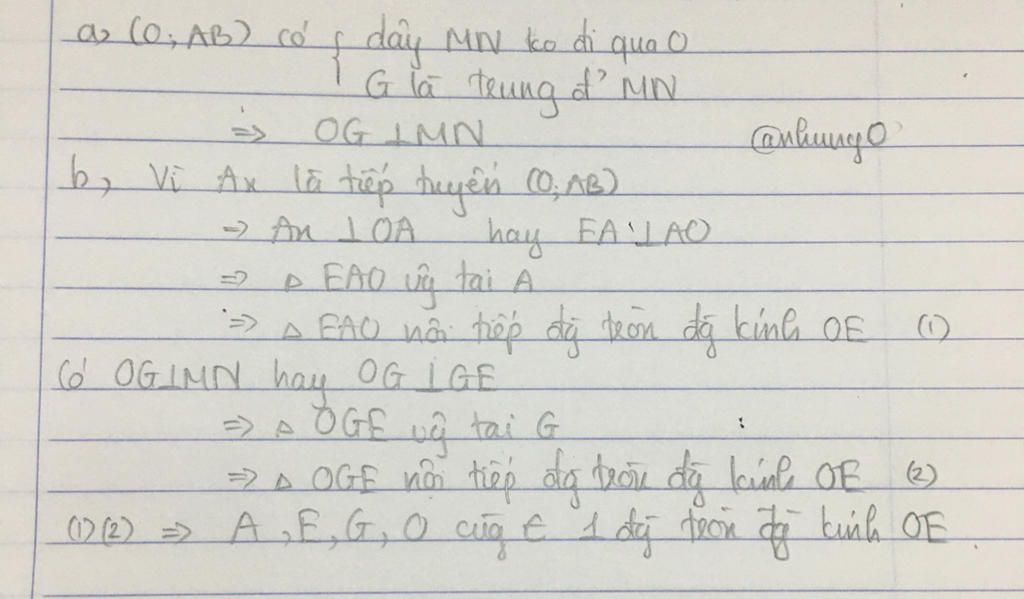 a, (O; AB) có { dây MN ko đi qua O
G là trung đ' MN
=> OG⊥MN @nhung0
b, Vì Ax là tiếp tuyến (O; AB)
=> Ax ⊥OA hay EA⊥AO
=> △ EAO vg̃ tại A
=> △ EAO nội tiếp đg̃ tròn đg̃ kính OE (1)
Có OG⊥MN hay OG⊥GE
=> △ OGE vg̃ tại G
=> △ OGE nội tiếp đg̃ tròn đg̃ kính OE (2)
(1)(2) => A, E, G, O cùg ∈ 1 đg̃ tròn đg̃ kính OE